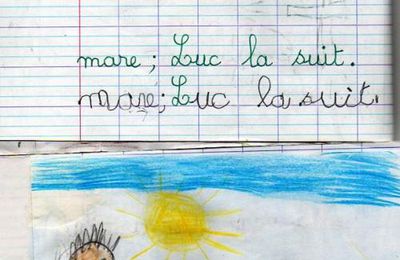 mare ; Luc la suit.
mare; Luc la suit.